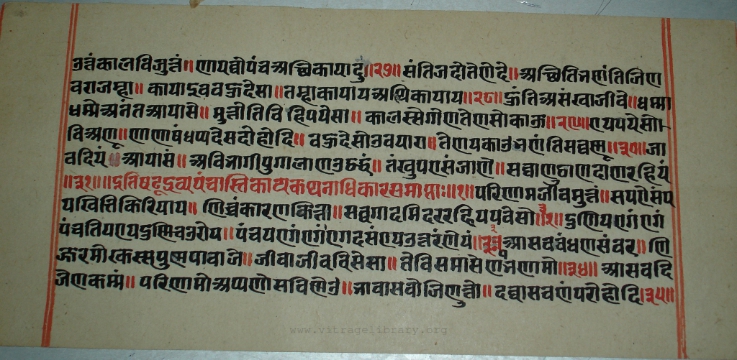 उत्तंकालविजुत्तं॥णायव्वापंचअच्छिकायादु॥२७॥संतिजदोतेणेदे॥अच्छित्तिभणंतिजिण
वराजम्हा॥कायाइवबहुदेसा॥तम्हाकायायअच्छिकायाय॥२८॥हुंतिअसंखाजीवे॥धम्मा
धम्मेअनंतआयासे॥मुत्तीतिविहपयेसा॥कालस्सेगोणतेणसोकाऊ॥२९॥एयपयेसो
विअणू॥णाणाषंधप्पदेसदोहोदि॥बहुदेसोउवयारा॥तेणयकाउभणंतिसवण्हू॥३०॥जा
वदियं आयासं॥अविभागीपुग्गलाणुवठद्धं॥तंखुपएसंजाणे॥सव्वाणुठाणदाणरहियं
॥३१॥इतिषट्द्रव्यपंचास्तिकायकथनाधिकारसमाप्तः॥१॥परिणामजीवमुत्तं॥सपएसंए
यखित्तकिरियाय॥णिच्चंकारणकित्ता॥सव्वगदमिदररहियपवेसो॥दुणियएगंएगं
पंचत्तियएयदुणिचउरोय॥पंचयएगंएगंएदसंएयउत्तरंणेयं॥३३॥आसवबंधणसंवर॥णि
ज्जरमोक्खस्सपुण्णपावाजे॥जीवाजीवविसेसा॥तेविसमासेणभणामो॥३४॥आसवदि
जेणकम्मं॥परिणामोअप्पणोसविणेउ॥भावासवोजिणुत्तो॥दव्वासवणंपरोहोदि॥३५॥
www.vitragelibrary.org